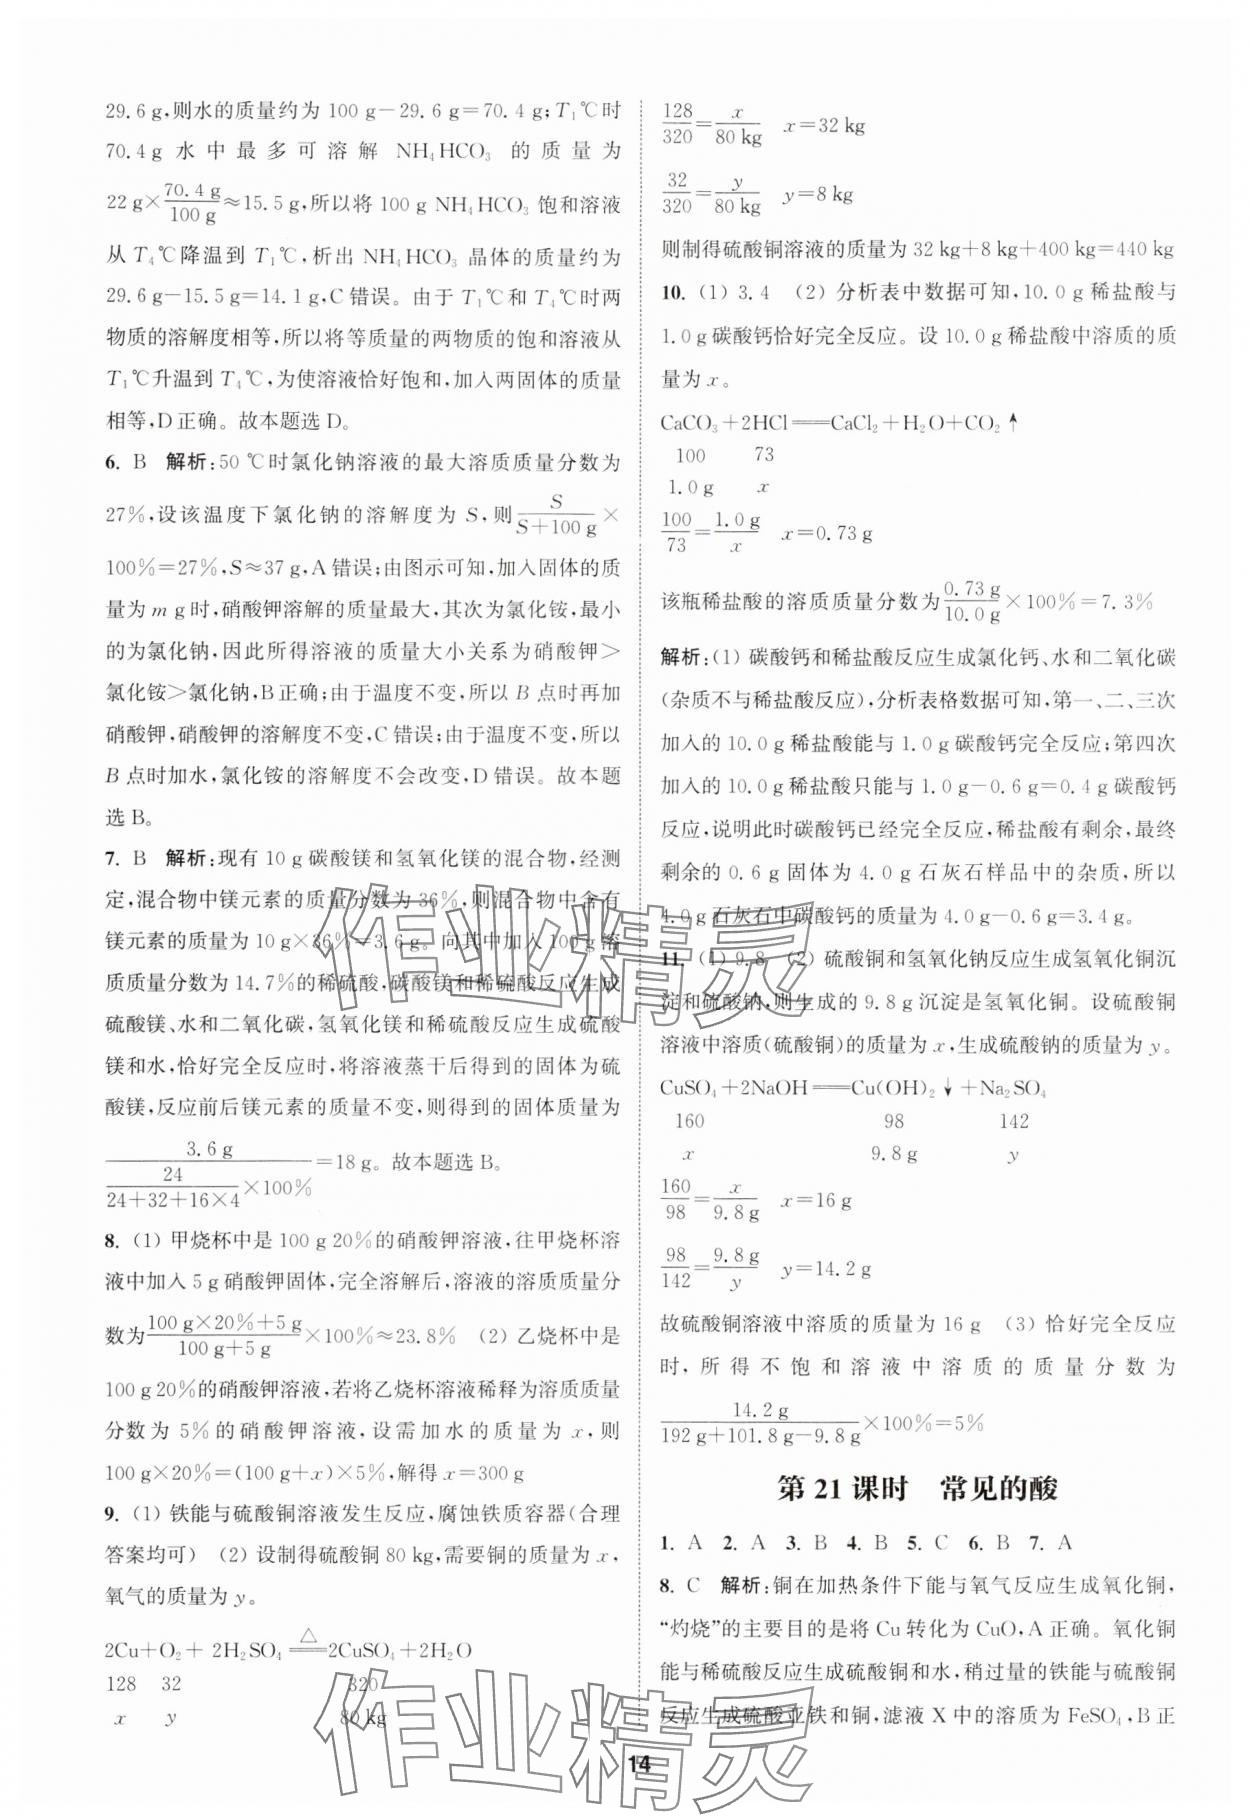 29.6 g,则水的质量约为 100 g−29.6 g=70.4 g;T₁℃时
70.4 g 水中最多可溶解 NH₄HCO₃ 的质量为
22 g×70.4 g/100 g≈15.5 g,所以将 100 g NH₄HCO₃ 饱和溶液
从 T₄℃降温到 T₁℃,析出 NH₄HCO₃ 晶体的质量约为
29.6 g−15.5 g=14.1 g,C错误。由于 T₁℃和 T₄℃时两
物质的溶解度相等,所以将等质量的两物质的饱和溶液从
T₁℃升温到 T₄℃,为使溶液恰好饱和,加入两固体的质量
相等,D正确。故本题选D。
6. B 解析:50 ℃时氯化钠溶液的最大溶质质量分数为
27%,设该温度下氯化钠的溶解度为 S,则S/(S+100 g)×
100%=27%,S≈37 g,A错误;由图示可知,加入固体的质
量为 m g时,硝酸钾溶解的质量最大,其次为氯化铵,最小
的为氯化钠,因此所得溶液的质量大小关系为硝酸钾>
氯化铵>氯化钠,B正确;由于温度不变,所以 B 点时再加
硝酸钾,硝酸钾的溶解度不变,C错误;由于温度不变,所以
B 点时加水,氯化铵的溶解度不会改变,D错误。故本题
选B。
7. B 解析:现有 10 g 碳酸镁和氢氧化镁的混合物,经测
定,混合物中镁元素的质量分数为 36%,则混合物中含有
镁元素的质量为 10 g×36%=3.6 g。向其中加入 100 g 溶
质质量分数为 14.7%的稀硫酸,碳酸镁和稀硫酸反应生成
硫酸镁、水和二氧化碳,氢氧化镁和稀硫酸反应生成硫酸
镁和水,恰好完全反应时,将溶液蒸干后得到的固体为硫
酸镁,反应前后镁元素的质量不变,则得到的固体质量为
3.6 g/(24/(24+32+16×4)×100%)=18 g。故本题选B。
8. (1) 甲烧杯中是 100 g 20%的硝酸钾溶液,往甲烧杯溶
液中加入 5 g 硝酸钾固体,完全溶解后,溶液的溶质质量分
数为(100 g×20%+5 g)/(100 g+5 g)×100%≈23.8% (2) 乙烧杯中是
100 g 20%的硝酸钾溶液,若将乙烧杯溶液稀释为溶质质量
分数为 5%的硝酸钾溶液,设需加水的质量为 x,则
100 g×20%=(100 g+x)×5%,解得 x=300 g
9. (1) 铁能与硫酸铜溶液发生反应,腐蚀铁质容器(合理
答案均可) (2) 设制得硫酸铜 80 kg,需要铜的质量为 x,
氧气的质量为 y。
2Cu+O₂+2H₂SO₄ =△= 2CuSO₄+2H₂O
128 32 320
x y 80 kg
128/320=x/80 kg x=32 kg
32/320=y/80 kg y=8 kg
则制得硫酸铜溶液的质量为 32 kg+8 kg+400 kg=440 kg
10. (1) 3.4 (2) 分析表中数据可知,10.0 g 稀盐酸与
1.0 g 碳酸钙恰好完全反应。设 10.0 g 稀盐酸中溶质的质
量为 x。
CaCO₃+2HCl══CaCl₂+H₂O+CO₂↑
100 73
1.0 g x
100/73=1.0 g/x x=0.73 g
该瓶稀盐酸的溶质质量分数为0.73 g/10.0 g×100%=7.3%
解析:(1) 碳酸钙和稀盐酸反应生成氯化钙、水和二氧化碳
(杂质不与稀盐酸反应),分析表格数据可知,第一、二、三次
加入的 10.0 g 稀盐酸能与 1.0 g 碳酸钙完全反应;第四次
加入的 10.0 g 稀盐酸只能与 1.0 g−0.6 g=0.4 g 碳酸钙
反应,说明此时碳酸钙已经完全反应,稀盐酸有剩余,最终
剩余的 0.6 g 固体为 4.0 g 石灰石样品中的杂质,所以
4.0 g 石灰石中碳酸钙的质量为 4.0 g−0.6 g=3.4 g。
11. (1) 9.8 (2) 硫酸铜和氢氧化钠反应生成氢氧化铜沉
淀和硫酸钠,则生成的 9.8 g 沉淀是氢氧化铜。设硫酸铜
溶液中溶质(硫酸铜)的质量为 x,生成硫酸钠的质量为 y。
CuSO₄+2NaOH══Cu(OH)₂↓+Na₂SO₄
160 98 142
x 9.8 g y
160/98=x/9.8 g x=16 g
98/142=9.8 g/y y=14.2 g
故硫酸铜溶液中溶质的质量为 16 g (3) 恰好完全反应
时,所得不饱和溶液中溶质的质量分数为
14.2 g/(192 g+101.8 g−9.8 g)×100%=5%
第 21 课时 常见的酸
1. A 2. A 3. B 4. B 5. C 6. B 7. A
8. C 解析:铜在加热条件下能与氧气反应生成氧化铜,
“灼烧”的主要目的是将 Cu 转化为 CuO,A正确。氧化铜
能与稀硫酸反应生成硫酸铜和水,稍过量的铁能与硫酸铜
反应生成硫酸亚铁和铜,滤液 X 中的溶质为 FeSO₄,B正
14
作业精灵
作业精灵